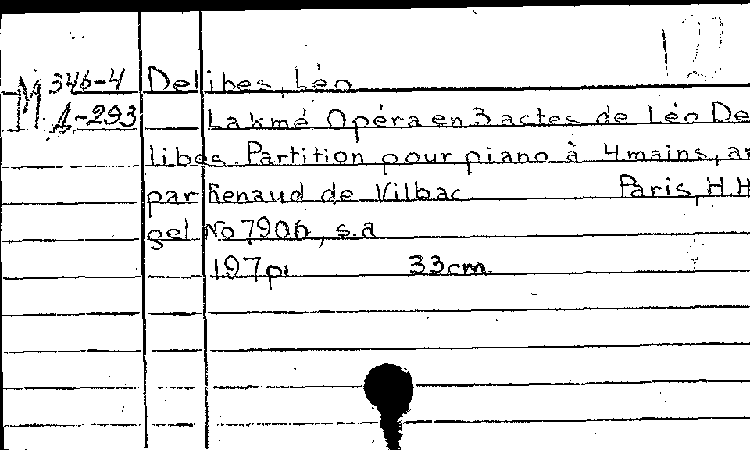 M 346-4 Delibes, Léo
A-293 Lakmé Opéra en 3 actes de Léo De
libes. Partition pour piano à 4 mains, ar
par Renaud de Vilbac Paris, H.H
gel No 7906, s.a
197 p. 33cm.